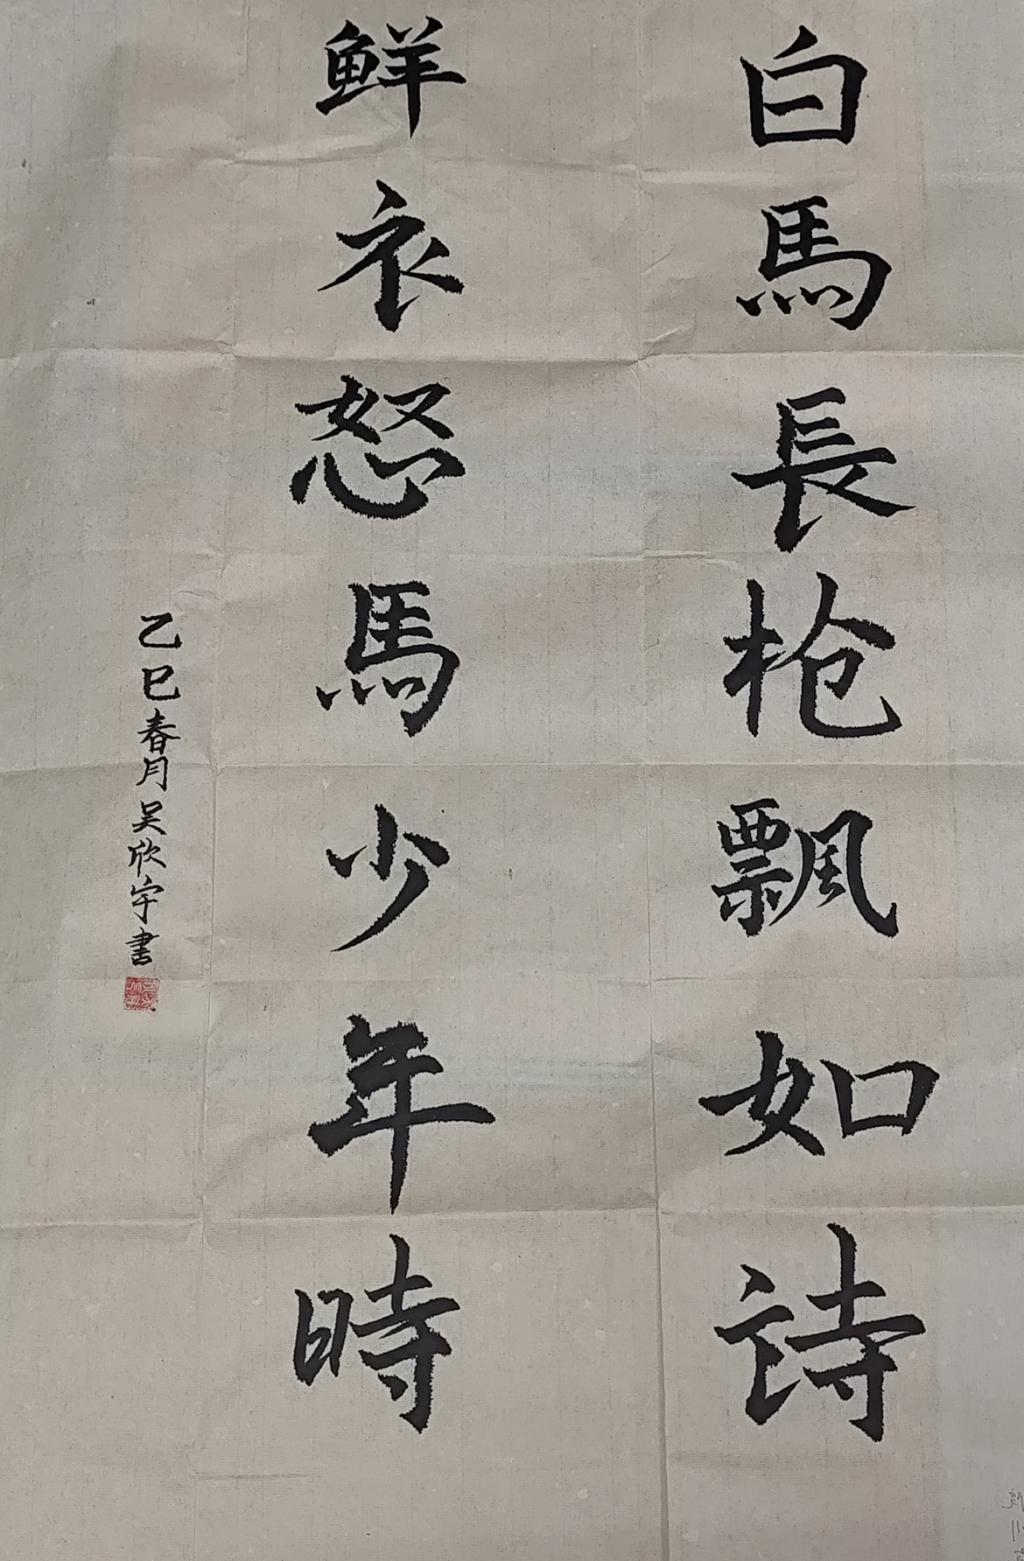 白馬長枪飄如詩
鮮衣怒馬少年時
乙巳春月吴欣宇書